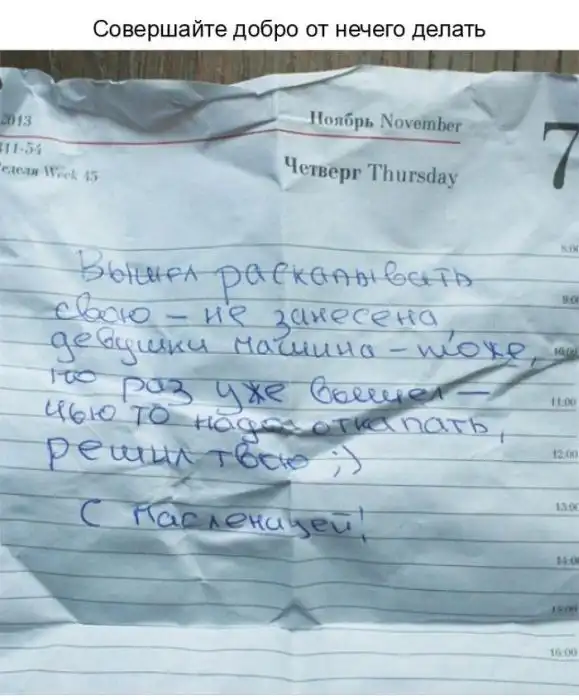 Совершайте добро от нечего делать
2013
Ноябрь November
311-54
Четверг Thursday
7
неделя Week 45
8:00
Вышел раскапывать
9:00
свою – не занесена,
девушки машина – тоже,
10:00
но раз уже вышел –
11:00
чью то надо откапать,
решил твою ;)
12:00
13:00
С Масленицей!
14:00
15:00
16:00